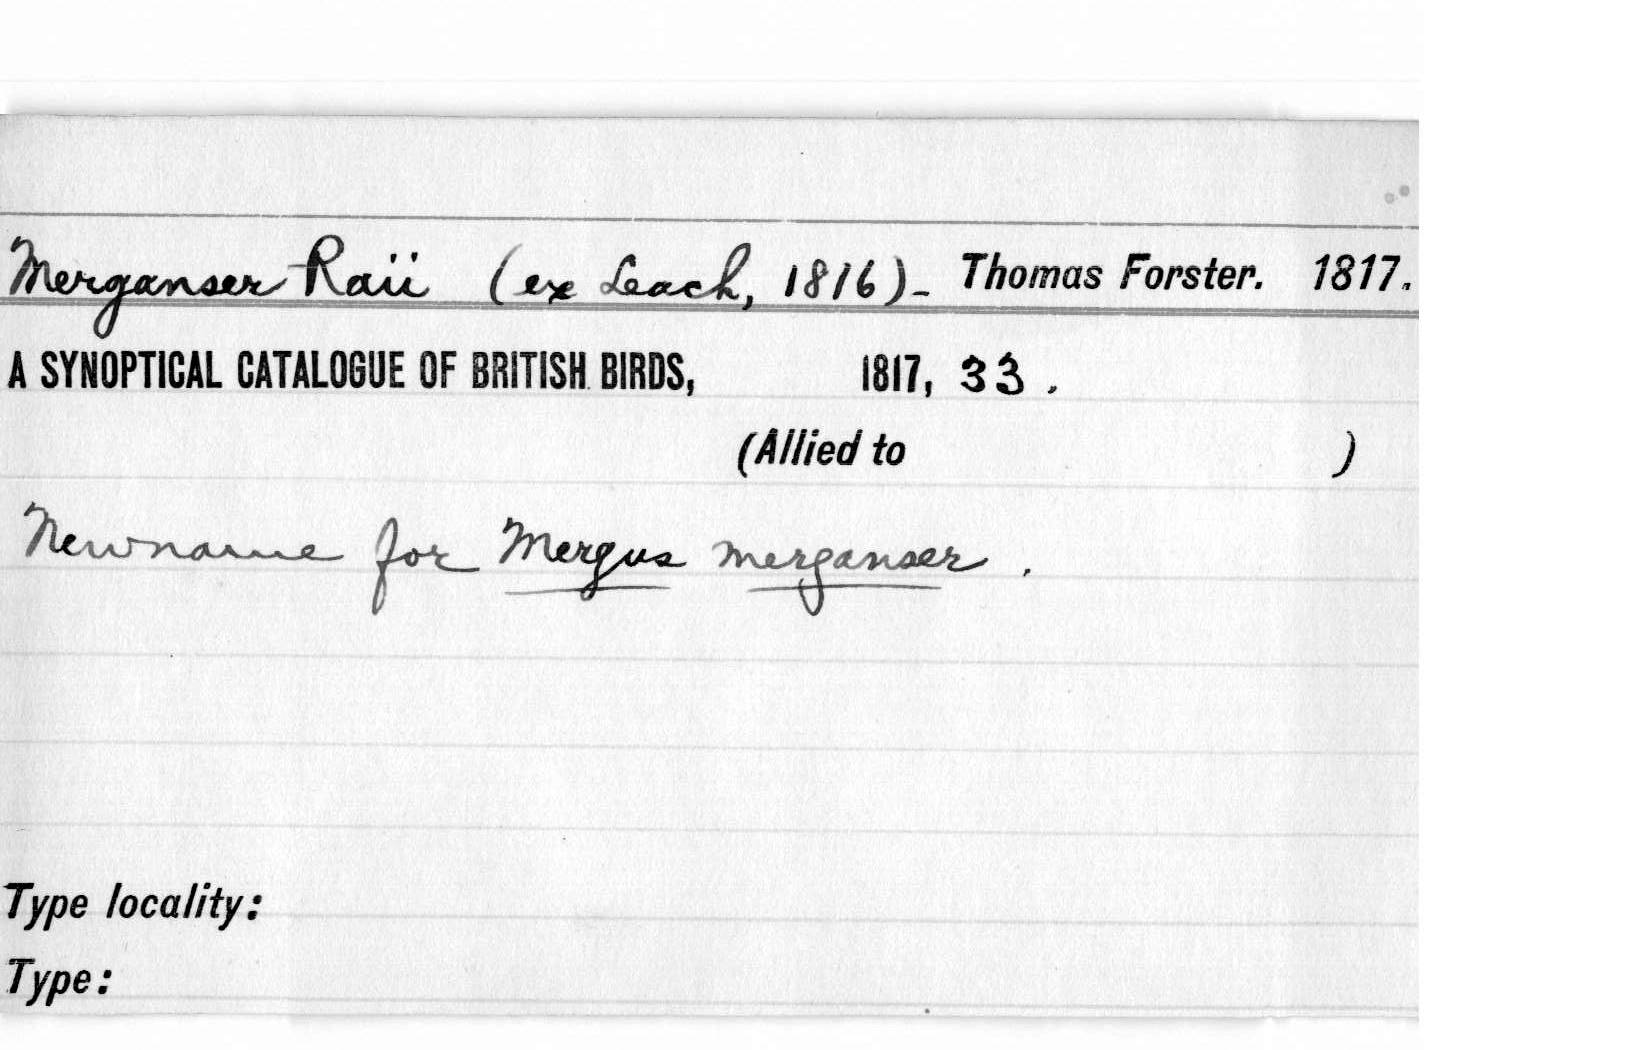 Merganser Raii (ex Leach, 1816)- Thomas Forster. 1817.
A SYNOPTICAL CATALOGUE OF BRITISH BIRDS, 1817, 33.
(Allied to )
New name for Mergus merganser.
Type locality:
Type: